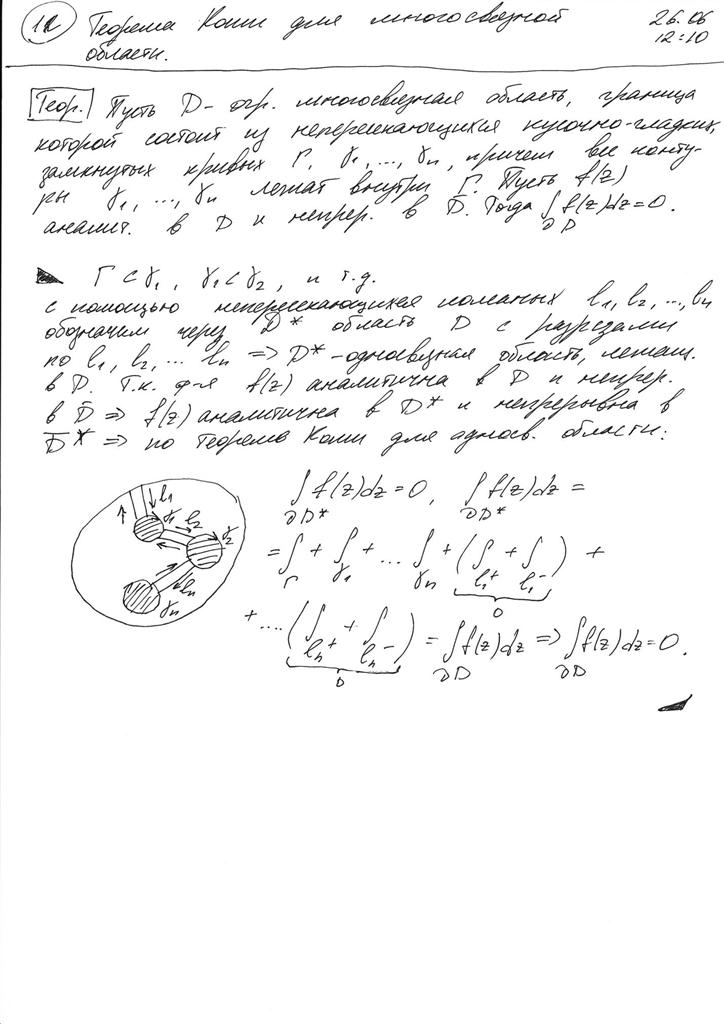 12 Теорема Коши для многосвязной 26.06
области. 12:10
Теор. Пусть D - огр. многосвязная область, граница
которой состоит из непересекающихся кусочно-гладких,
замкнутых кривых Γ, γ1, ..., γn, причем все конту-
ры γ1, ..., γn лежат внутри Γ. Пусть f(z)
аналит. в D и непрер. в D̅. Тогда ∫∂D f(z)dz=0.
Γ с γ1, γ1 с γ2, и т.д.
с помощью непересекающихся ломаных l1, l2, ..., ln
обозначим через D* область D с разрезами
по l1, l2, ... ln => D* - односвязная область, лежащ.
в D. Т.к. ф-я f(z) аналитична в D и непрер.
в D̅ => f(z) аналитична в D* и непрерывна в
D̅* => по Теорема Коши для односв. области:
∫∂D* f(z)dz=0, ∫∂D* f(z)dz=
l1 γ1 l2 γ2 ln γn
=∫Γ + ∫γ1 + ... ∫γn + (∫l1+ + ∫l1-) +
0
+ .... (∫ln+ + ∫ln-) = ∫∂D f(z)dz => ∫∂D f(z)dz=0.
0